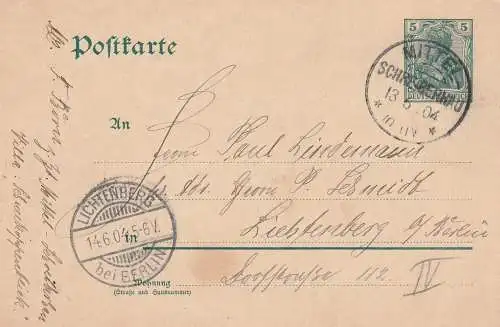 Postkarte
5
5
MITTEL
SCHREIBERHAU
13 6 04
An
Herrn Paul Lindemann
Herrn P. Schmidt
in
Lichtenberg b/ Berlin
LICHTENBERG
14.6.04.5-6V.
bei BERLIN
Wohnung
(Straße und Hausnummer)
Dorfstrasse 112 IV
Abs. F.
Mittel Schreiberhau
Villa